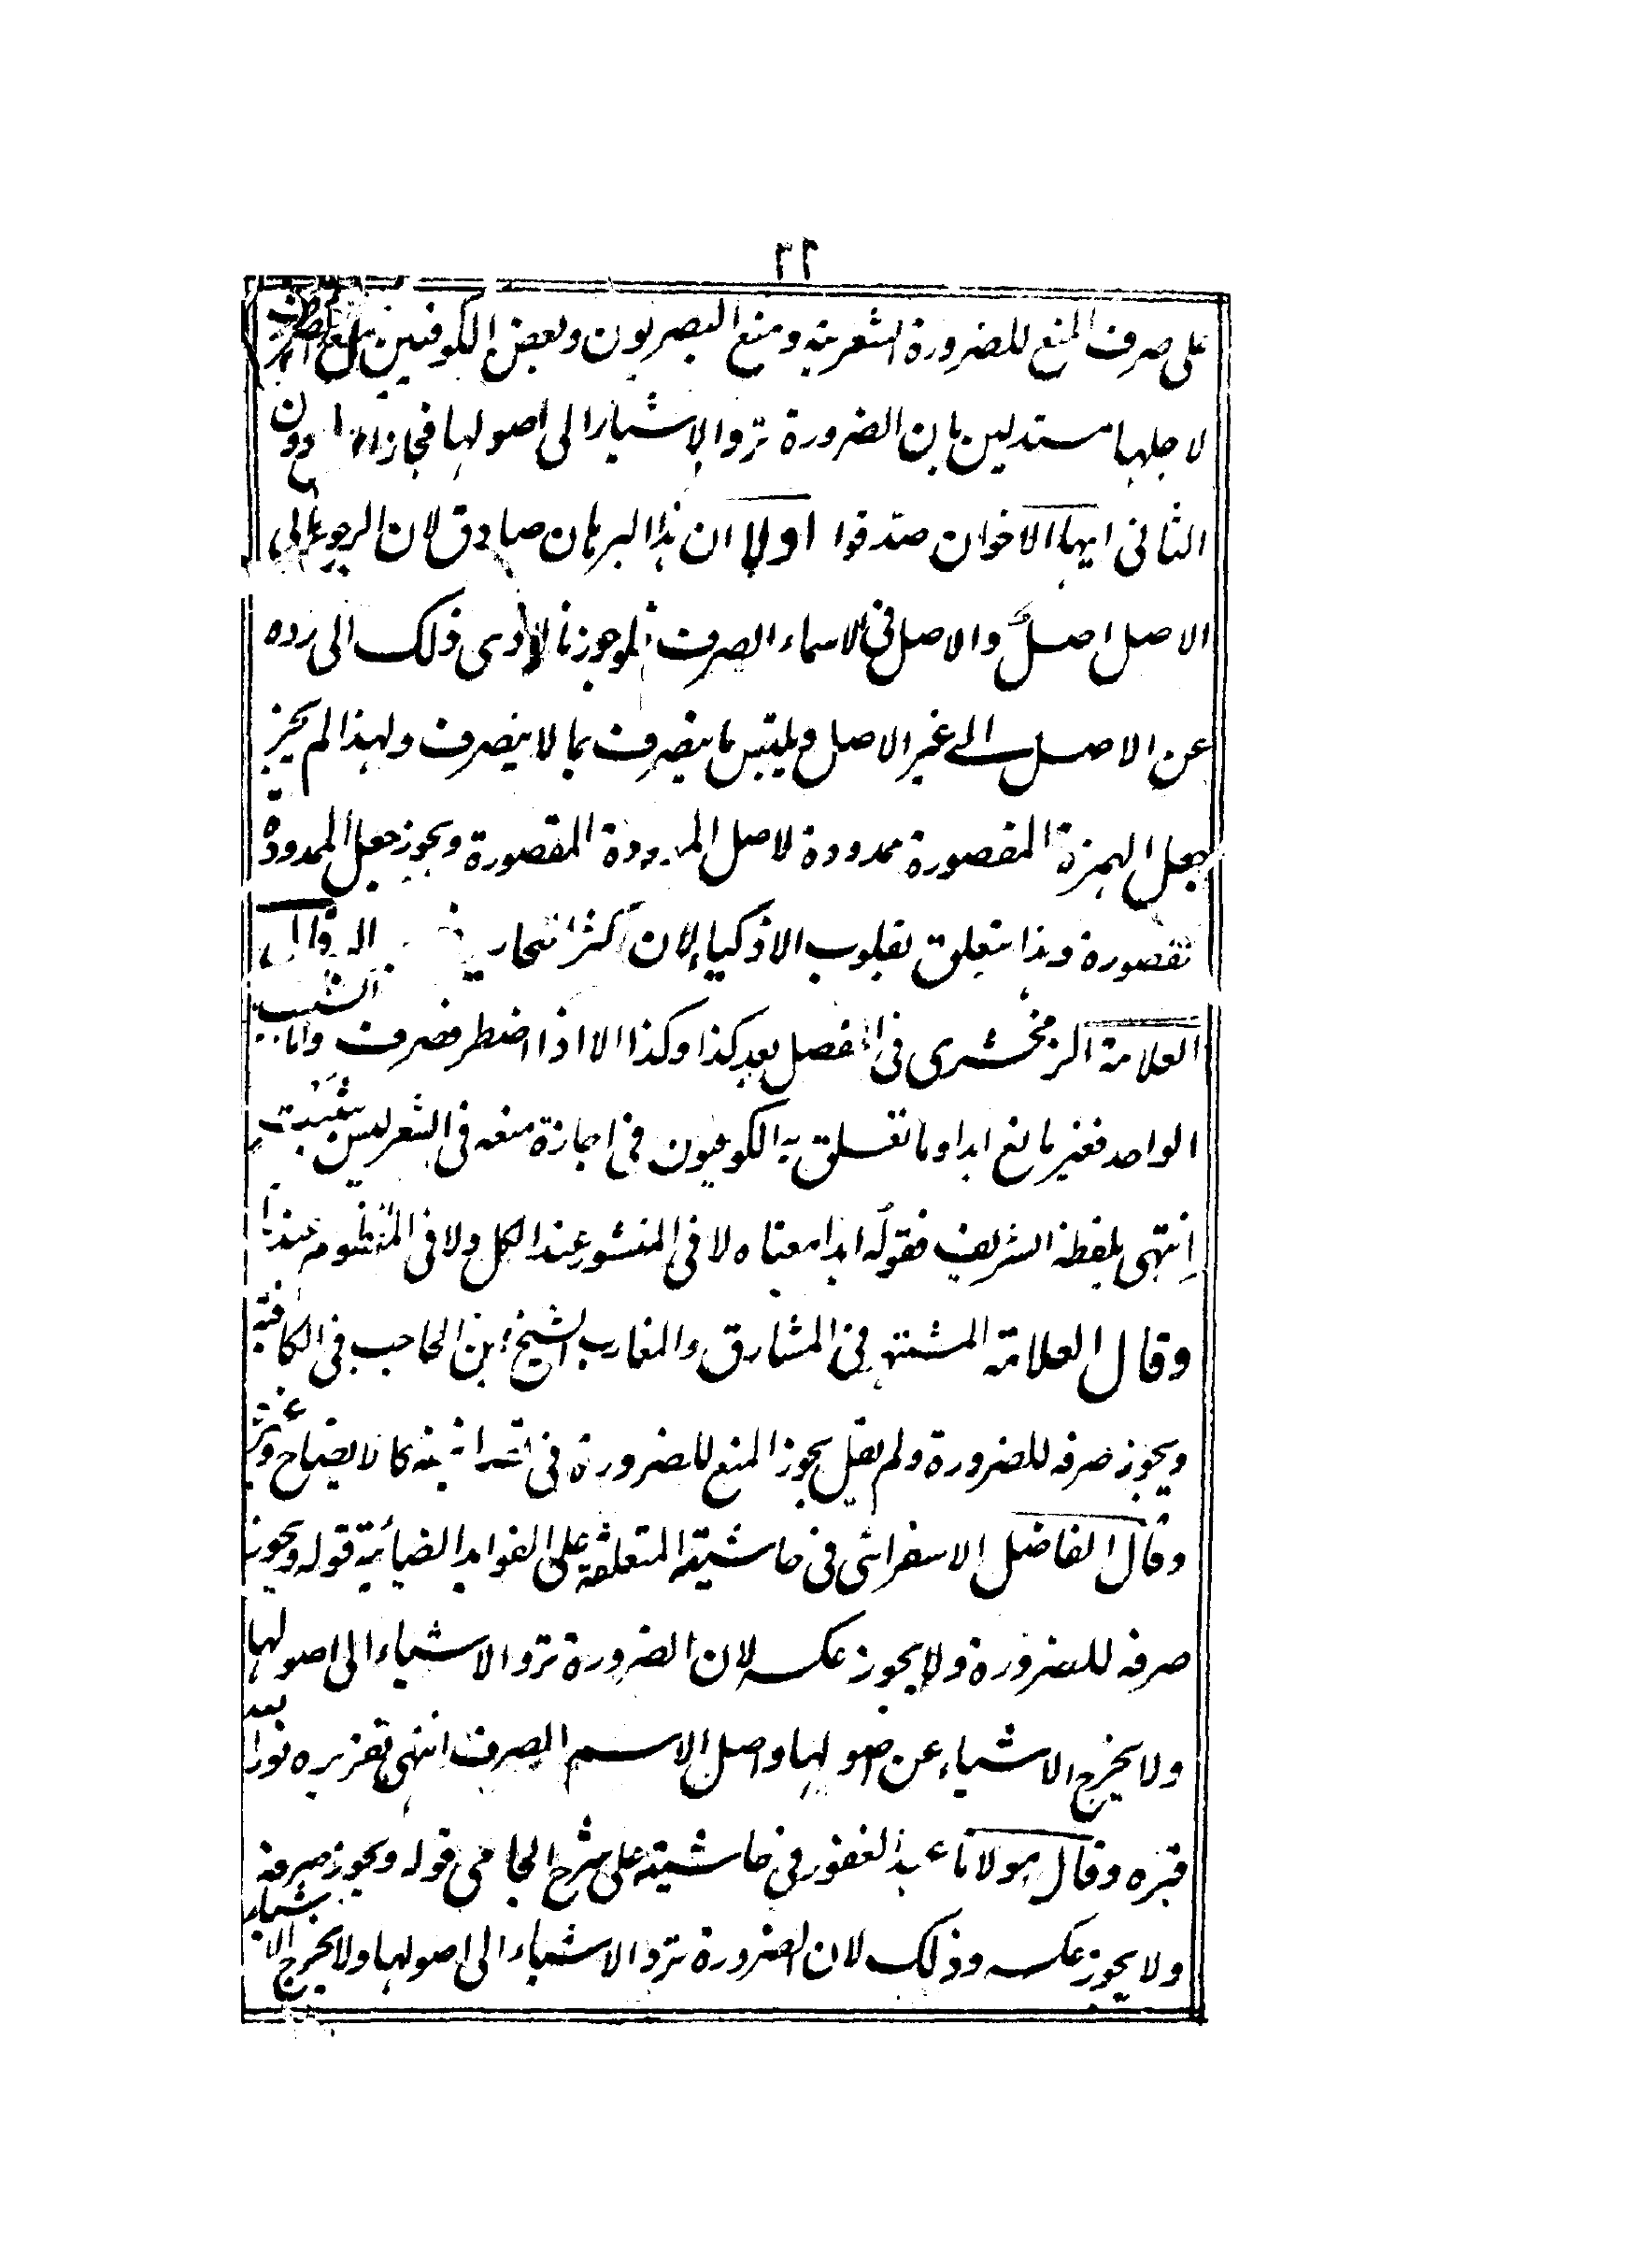 ٢٢
على صرف المنع للضرورة الشعرية ومنع البصريون وبعض الكوفيين منع
لاجلها مستدلين بان الضرورة ترد الاشياء الى اصولها فجاز دون
الثانى ايها الاخوان صدقوا اولا ان هذا البرهان صادق لان الرجوع الى
الاصل اصل والاصل فى الاسماء الصرف فلو جوزنا لادى ذلك الى رده
عن الاصل الى غير الاصل ويلتبس ما ينصرف بما لا ينصرف ولهذا لم يجز
جعل الهمزة المقصورة ممدودة لاصل الممدودة المقصورة ويجوز جعل الممدودة
مقصورة وهذا يتعلق بقلوب الاذكياء لان اكثر قال
العلامة الزمخشرى فى المفصل بعد كذا وكذا الا اذا اضطر فصرف واما السبب
الواحد فغير مانع ابدا وما تعلق به الكوفيون فى اجازة منعه فى الشعر ليس بثبت
انتهى بلفظه الشريف فقوله ابدا معناه لا فى المنثور عند الكل ولا فى المنظوم عندنا
وقال العلامة المشتهر فى المشارق والمغارب الشيخ ابن الحاجب فى الكافية
ويجوز صرفه للضرورة ولم يقل يجوز المنع للضرورة فى كالايضاح وغيره
وقال الفاضل الاسفرائنى فى حاشيته المتعلقة على الفوايد الضيائية قوله ويجوز
صرفه للضرورة ولا يجوز عكسه لان الضرورة ترد الاشياء الى اصولها
ولا يخرج الاشياء عن اصولها واصل الاسم الصرف انتهى تقريره نور الله
قبره وقال مولانا عبد الغفور فى حاشيته على شرح الجامى قوله ويجوز صرفه
ولا يجوز عكسه وذلك لان الضرورة ترد الاشياء الى اصولها ولا يخرج الاشياء